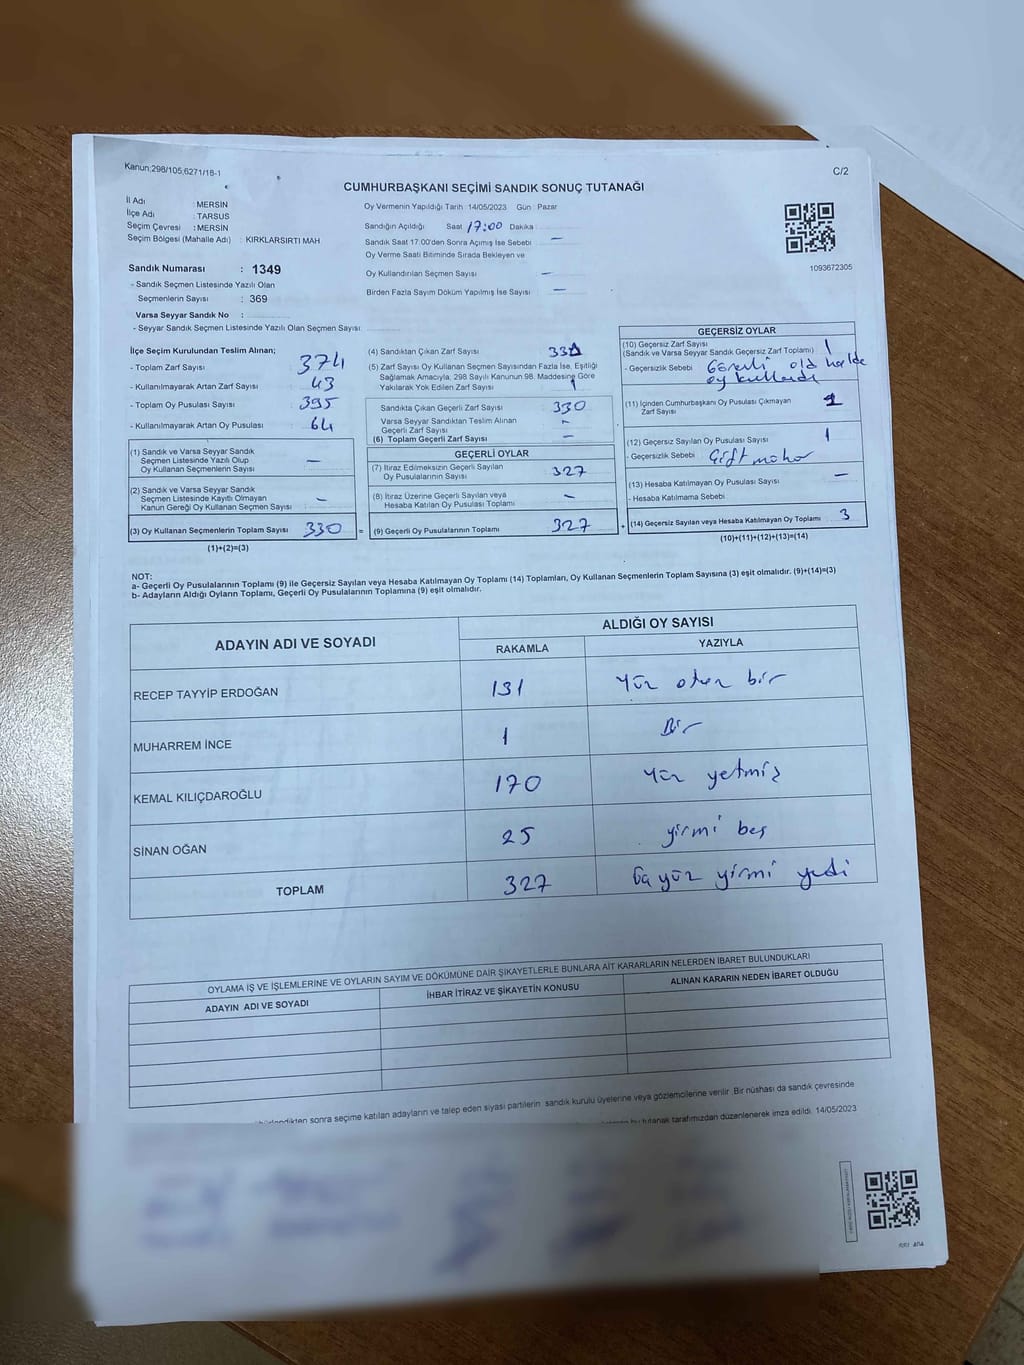 Kanun;298/105,6271/18-1
C/2
CUMHURBAŞKANI SEÇİMİ SANDIK SONUÇ TUTANAĞI
İl Adı : MERSİN
İlçe Adı : TARSUS
Seçim Çevresi : MERSİN
Seçim Bölgesi (Mahalle Adı) : KIRKLARSIRTI MAH
Sandık Numarası : 1349
- Sandık Seçmen Listesinde Yazılı Olan
Seçmenlerin Sayısı : 369
Varsa Seyyar Sandık No :
- Seyyar Sandık Seçmen Listesinde Yazılı Olan Seçmen Sayısı:
Oy Vermenin Yapıldığı Tarih :14/05/2023 Gün : Pazar
Sandığın Açıldığı Saat 17:00 Dakika :
Sandık Saat 17:00'den Sonra Açımış İse Sebebi —
Oy Verme Saati Bitiminde Sırada Bekleyen ve
Oy Kullandırılan Seçmen Sayısı —
Birden Fazla Sayım Döküm Yapılmış İse Sayısı —
1093672305
İlçe Seçim Kurulundan Teslim Alınan;
- Toplam Zarf Sayısı : 374
- Kullanılmayarak Artan Zarf Sayısı : 43
- Toplam Oy Pusulası Sayısı : 395
- Kullanılmayarak Artan Oy Pusulası : 64
(1) Sandık ve Varsa Seyyar Sandık
Seçmen Listesinde Yazılı Olup
Oy Kullanan Seçmenlerin Sayısı —
(2) Sandık ve Varsa Seyyar Sandık
Seçmen Listesinde Kayıtlı Olmayan
Kanun Gereği Oy Kullanan Seçmen Sayısı —
(3) Oy Kullanan Seçmenlerin Toplam Sayısı 330 =
(1)+(2)=(3)
(4) Sandıktan Çıkan Zarf Sayısı
(5) Zarf Sayısı Oy Kullanan Seçmen Sayısından Fazla İse, Eşitliği
Sağlamak Amacıyla, 298 Sayılı Kanunun 98. Maddesine Göre
Yakılarak Yok Edilen Zarf Sayısı 1
Sandıkta Çıkan Geçerli Zarf Sayısı 330
Varsa Seyyar Sandıktan Teslim Alınan
Geçerli Zarf Sayısı —
(6) Toplam Geçerli Zarf Sayısı —
GEÇERLİ OYLAR
(7) İtiraz Edilmeksizin Geçerli Sayılan
Oy Pusulalarının Sayısı 327
(8) İtiraz Üzerine Geçerli Sayılan veya
Hesaba Katılan Oy Pusulası Toplamı —
(9) Geçerli Oy Pusulalarının Toplamı 327 +
GEÇERSİZ OYLAR
(10) Geçersiz Zarf Sayısı
(Sandık ve Varsa Seyyar Sandık Geçersiz Zarf Toplamı) 1
- Geçersizlik Sebebi Görevli old halde
oy kullandı
(11) İçinden Cumhurbaşkanı Oy Pusulası Çıkmayan
Zarf Sayısı 1
(12) Geçersiz Sayılan Oy Pusulası Sayısı 1
- Geçersizlik Sebebi Çift mühür
(13) Hesaba Katılmayan Oy Pusulası Sayısı —
- Hesaba Katılmama Sebebi
(14) Geçersiz Sayılan veya Hesaba Katılmayan Oy Toplamı 3
(10)+(11)+(12)+(13)=(14)
NOT:
a- Geçerli Oy Pusulalarının Toplamı (9) ile Geçersiz Sayılan veya Hesaba Katılmayan Oy Toplamı (14) Toplamları, Oy Kullanan Seçmenlerin Toplam Sayısına (3) eşit olmalıdır. (9)+(14)=(3)
b- Adayların Aldığı Oyların Toplamı, Geçerli Oy Pusulalarının Toplamına (9) eşit olmalıdır.
ADAYIN ADI VE SOYADI
ALDIĞI OY SAYISI
RAKAMLA YAZIYLA
RECEP TAYYİP ERDOĞAN 131 Yüz otuz bir
MUHARREM İNCE 1 Bir
KEMAL KILIÇDAROĞLU 170 Yüz yetmiş
SİNAN OĞAN 25 yirmi beş
TOPLAM 327 üçyüz yirmi yedi
OYLAMA İŞ VE İŞLEMLERİNE VE OYLARIN SAYIM VE DÖKÜMÜNE DAİR ŞİKAYETLERLE BUNLARA AİT KARARLARIN NELERDEN İBARET BULUNDUKLARI
ADAYIN ADI VE SOYADI İHBAR İTİRAZ VE ŞİKAYETİN KONUSU ALINAN KARARIN NEDEN İBARET OLDUĞU
sonra seçime katılan adayların ve talep eden siyasi partilerin sandık kurulu üyelerine veya gözlemcilerine verilir. Bir nüshası da sandık çevresinde
bu tutanak tarafımızdan düzenlenerek imza edildi. 14/05/2023